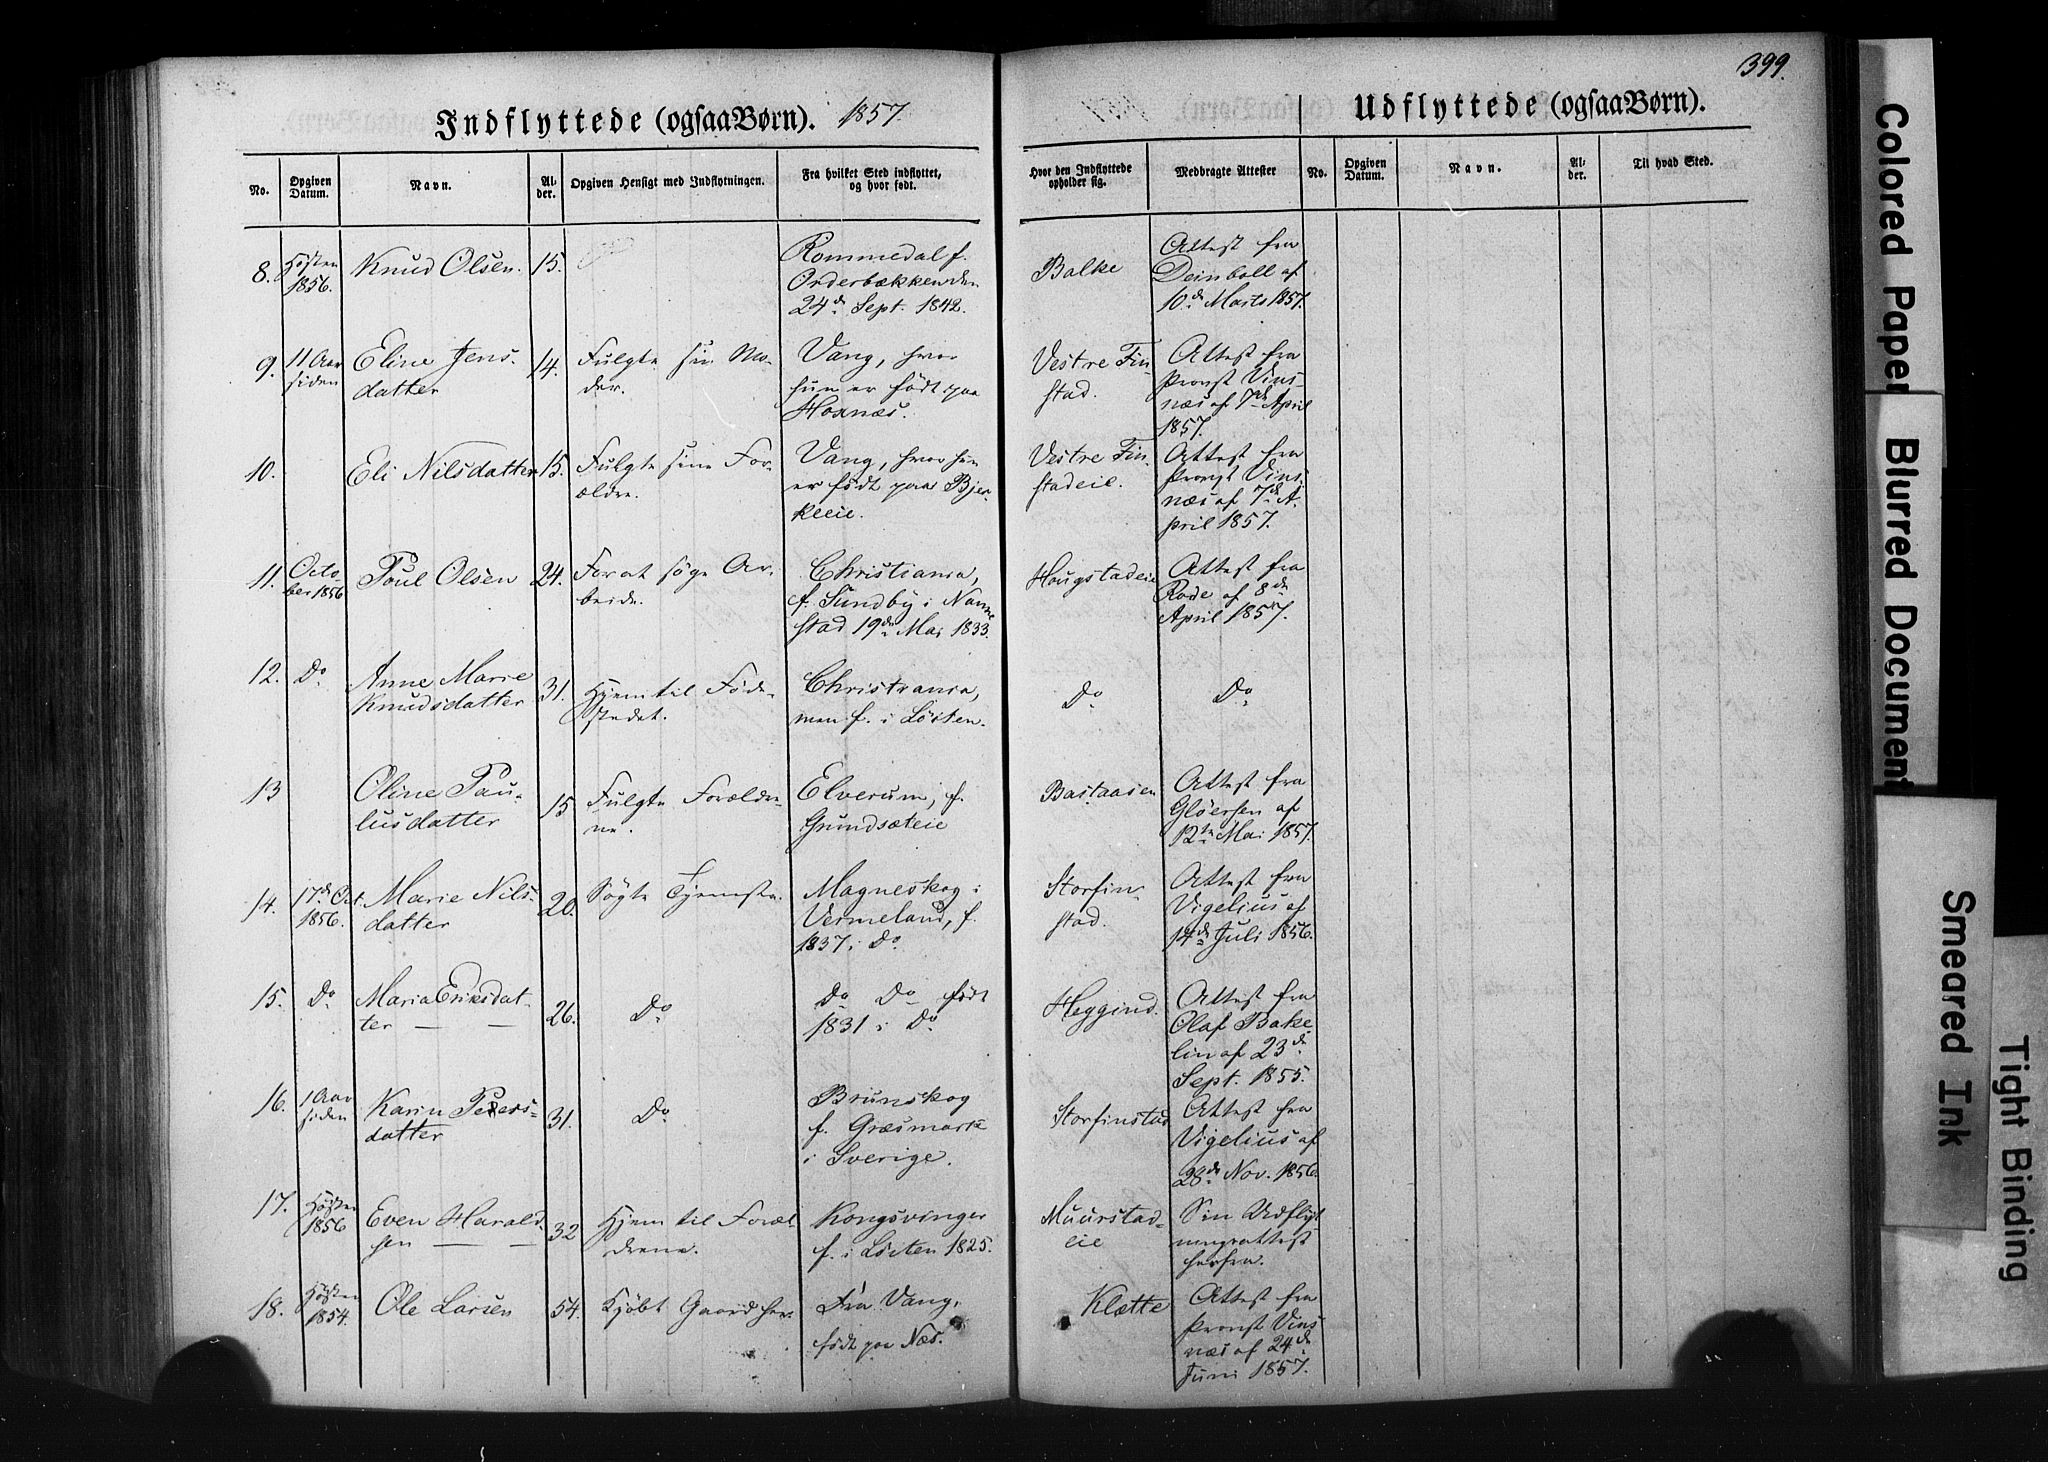 399.
Indflyttede (ogsaa Børn). 1857
Udflyttede (ogsaa Børn).
No. Opgiven Datum. Navn. Alder. Opgiven Hensigt med Indflytningen. Fra hvilket Sted indflyttet, og hvor født. Hvor den Indflyttede opholder sig. Medbragte Attester No. Opgiven Datum. Navn. Alder. Til hvad Sted.
8. Høsten 1856. Knud Olsen. 15. Rommedal f. Orderbækken den 24d. Sept. 1842. Balke Attest fra Deinboll af 10d. Marts 1857.
9. 11 Aar siden Eline Jensdatter 14. Fulgte sin Moder. Vang, hvor hun er født paa Hosnæs. Vestre Finstad. Attest fra Provst Vinsnæs af 7d. April 1857.
10. Eli Nilsdatter 15. Fulgte sine Forældre. Vang, hvor hun er født paa Bjerkeeie. Vestre Finstadeie. Attest fra Provst Vinsnæs af 7d. April 1857.
11. October 1856 Poul Olsen 24. For at søge Arbeide. Christiania, f. Sundby i Nannestad 19d. Mai 1833. Hougstadeie Attest fra Rode af 8de April 1857.
12. Do Anne Marie Knudsdatter 31. Hjem til Fødestedet. Christiania, men f. i Løiten. Do Do
13 Oline Paulusdatter 15 Fulgte Forældrene. Elverum, f. Grundsæteie Bastaasen Attest fra Gløersen af 12te Mai 1857.
14. 17d. Oct. 1856. Marie Nilsdatter 20. Søgte Tjeneste. Magneskog i Vermeland, f. 1837 i Do. Storfinstad. Attest fra Vigelius af 14d. Juli 1856.
15. Do Maria Eriksdatter 26. Do Do Do født 1831 i Do Heggind. Attest fra Olaf Bakelin af 23d. Sept. 1855.
16. 1 Aar siden Karin Petersdatter 31. Do Brunskog f. Græsmark i Sverige. Storfinstad Attest fra Vigelius af 28d. Nov. 1856.
17. Høsten 1856 Even Haraldsen 32 Hjem til Forældrene. Kongsvinger f. i Løiten 1825. Muurstadeie Sin Udflytningsattest herfra.
18. Høsten 1854. Ole Larsen 54. Kjøbt Gaard her. Fra Vang, født paa Næs. Klætte Attest fra Provst Vinsnæs af 24d. Juni 1857.
Colored Paper
Blurred Document
Smeared Ink
Tight Binding